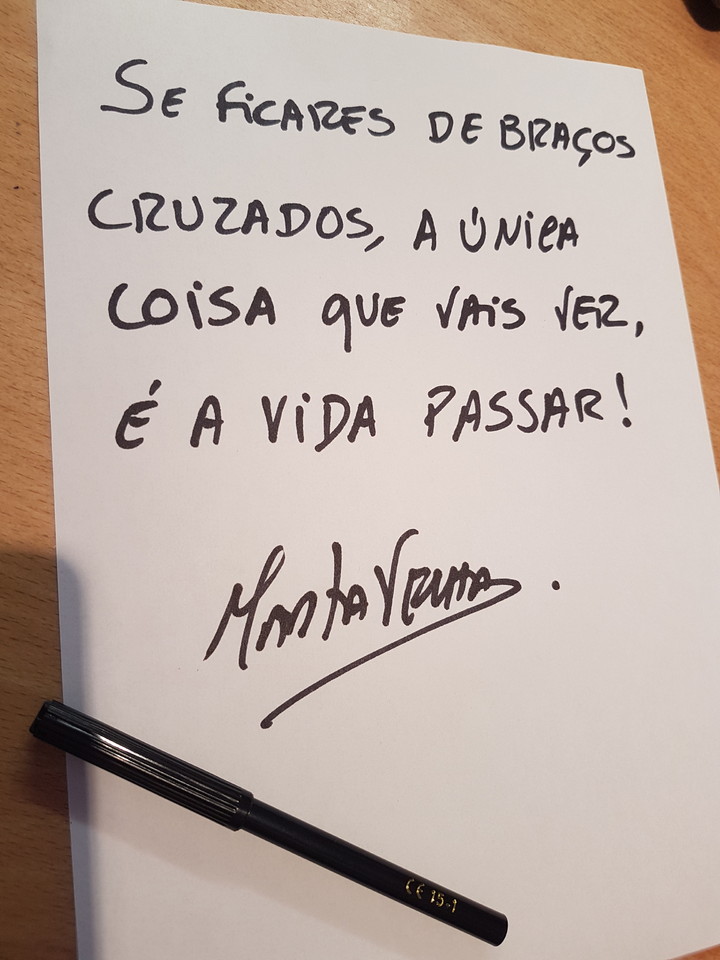 SE FiCARES DE BRAÇOS
CRUZADOS, A ÚNiCA
COiSA QUE VAiS VER,
É A ViDA PASSAR!
CE 15-1